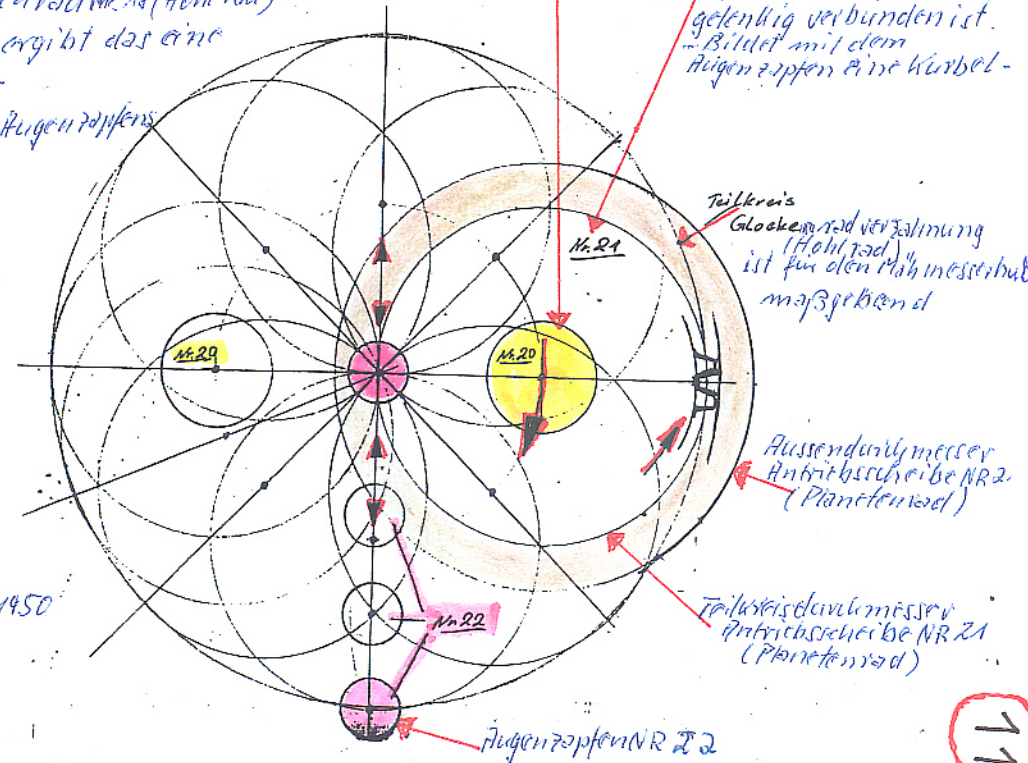 (Hohlrad)
ergibt das eine
Augenzapfens
gelenkig verbunden ist.
- Bildet mit dem
Augenzapfen eine Kurbel-
Teilkreis
Glockenradverzahnung
(Hohlrad)
ist für den Mähmesserhub
maßgebend
Nr. 21
Nr. 20
Nr. 20
Aussendurchmesser
Antriebsscheibe NR 2.
(Planetenrad)
1950
Nr 22
Teilkreisdurchmesser
Antriebsscheibe NR 21
(Planetenrad)
Augenzapfen NR 22
11